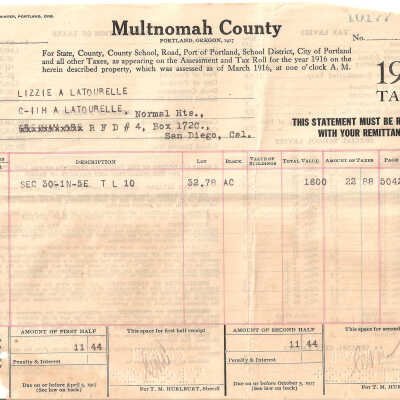 PRINTER, PORTLAND, ORE.
Multnomah County
PORTLAND, OREGON, 1917
No.
For State, County, County School, Road, Port of Portland, School District, City of Portland
and all other Taxes, as appearing on the Assessment and Tax Roll for the year 1916 on the
herein described property, which was assessed as of March 1916, at one o'clock A. M.
19
TA
LIZZIE A LATOURELLE
C-IIH A LATOURELLE, Normal Hts.,
R F D # 4, Box 172C,
San Diego, Cal.
THIS STATEMENT MUST BE R
WITH YOUR REMITTAN
DESCRIPTION LOT BLOCK VALUE OF BUILDINGS TOTAL VALUE AMOUNT OF TAXES
SEC 30-1N-5E T L 10 32.78 AC 1600 22 88 5042
AMOUNT OF FIRST HALF This space for first half receipt AMOUNT OF SECOND HALF This space for second
11 44 11 44
Penalty & Interest Penalty & Interest
Due on or before April 5, 1917
(See law on back)
For T. M. HURLBURT, Sheriff
Due on or before October 5, 1917
(See law on back)
For T. M. HUR